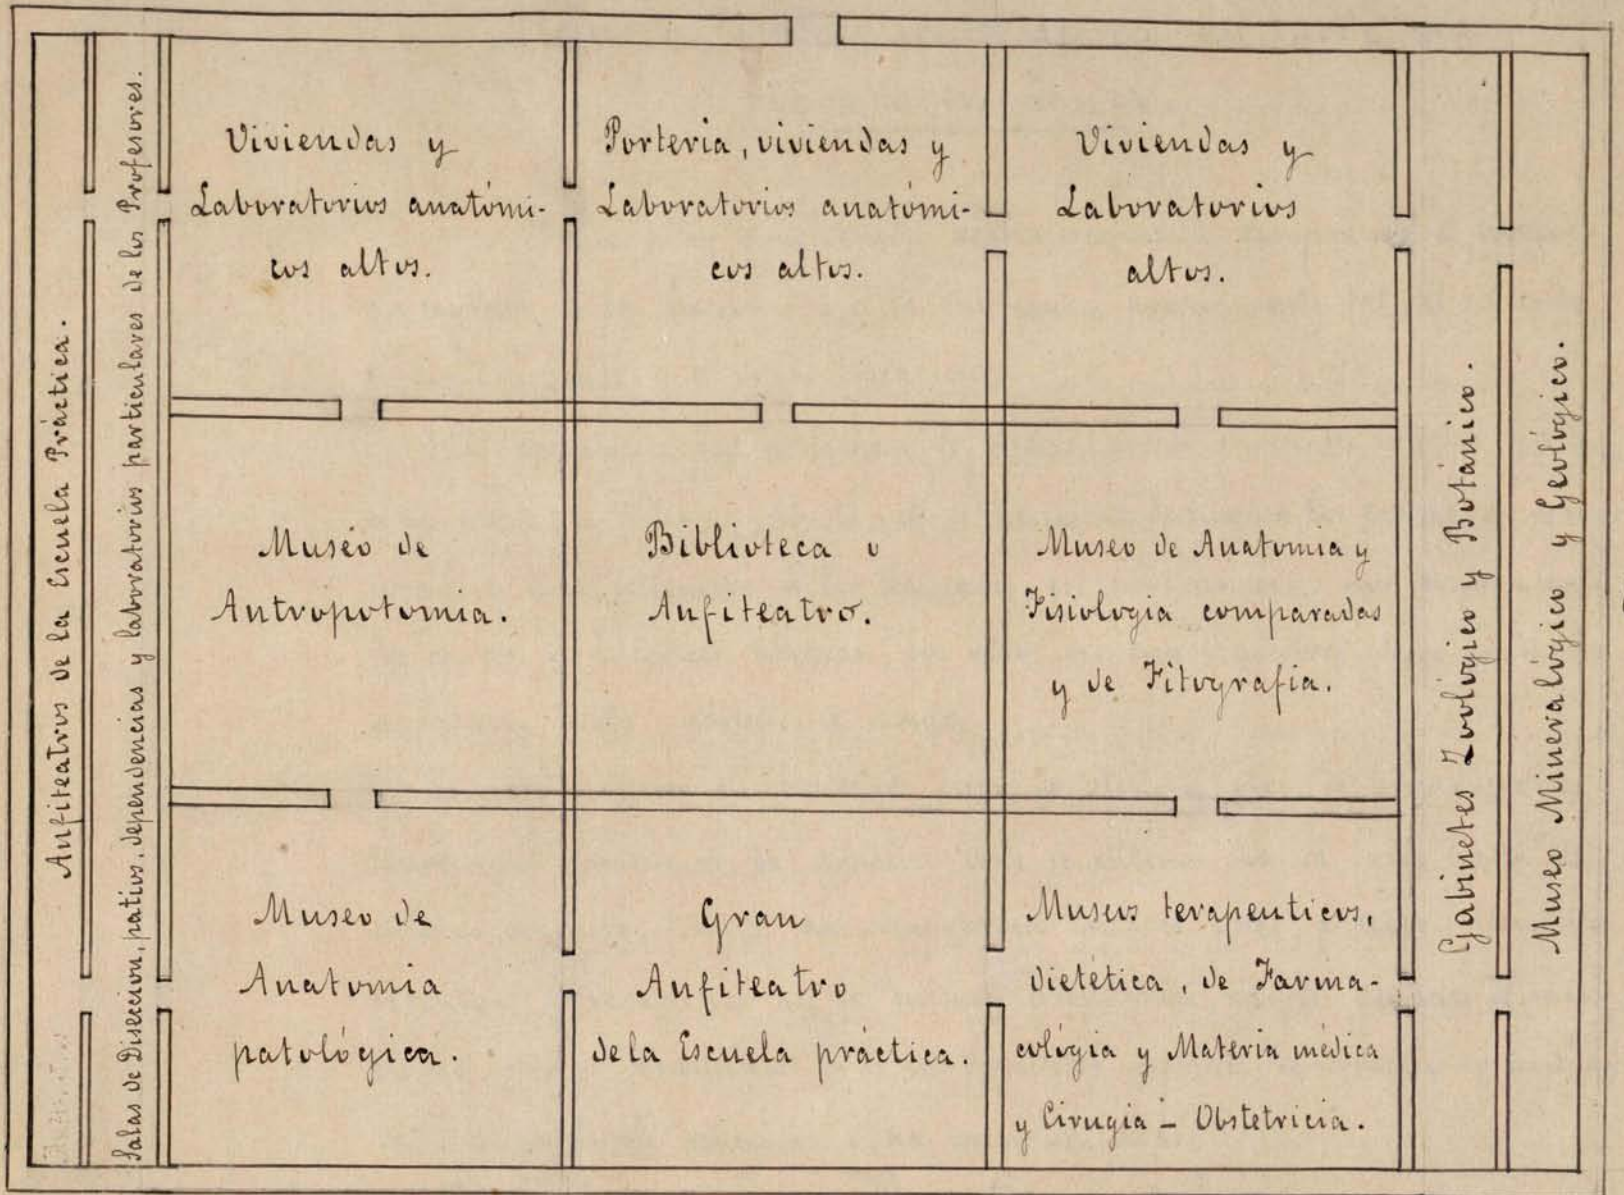 Anfiteatros de la Escuela Práctica.
Salas de Diseccion, patios, dependencias y laboratorios particulares de los Profesores.
Viviendas y
Laboratorios anatómi-
cos altos.
Porteria, viviendas y
Laboratorios anatómi-
cos altos.
Viviendas y
Laboratorios
altos.
Museo de
Antropotomia.
Biblioteca o
Anfiteatro.
Museo de Anatomia y
Fisiologia comparadas
y de Fitografia.
Museo de
Anatomia
patológica.
Gran
Anfiteatro
de la Escuela práctica.
Museos terapeuticos,
dietética, de Farma-
cológia y Materia médica
y Cirugia - Obstetricia.
Gabinetes Zoológico y Botánico.
Museo Mineralógico y Geológico.